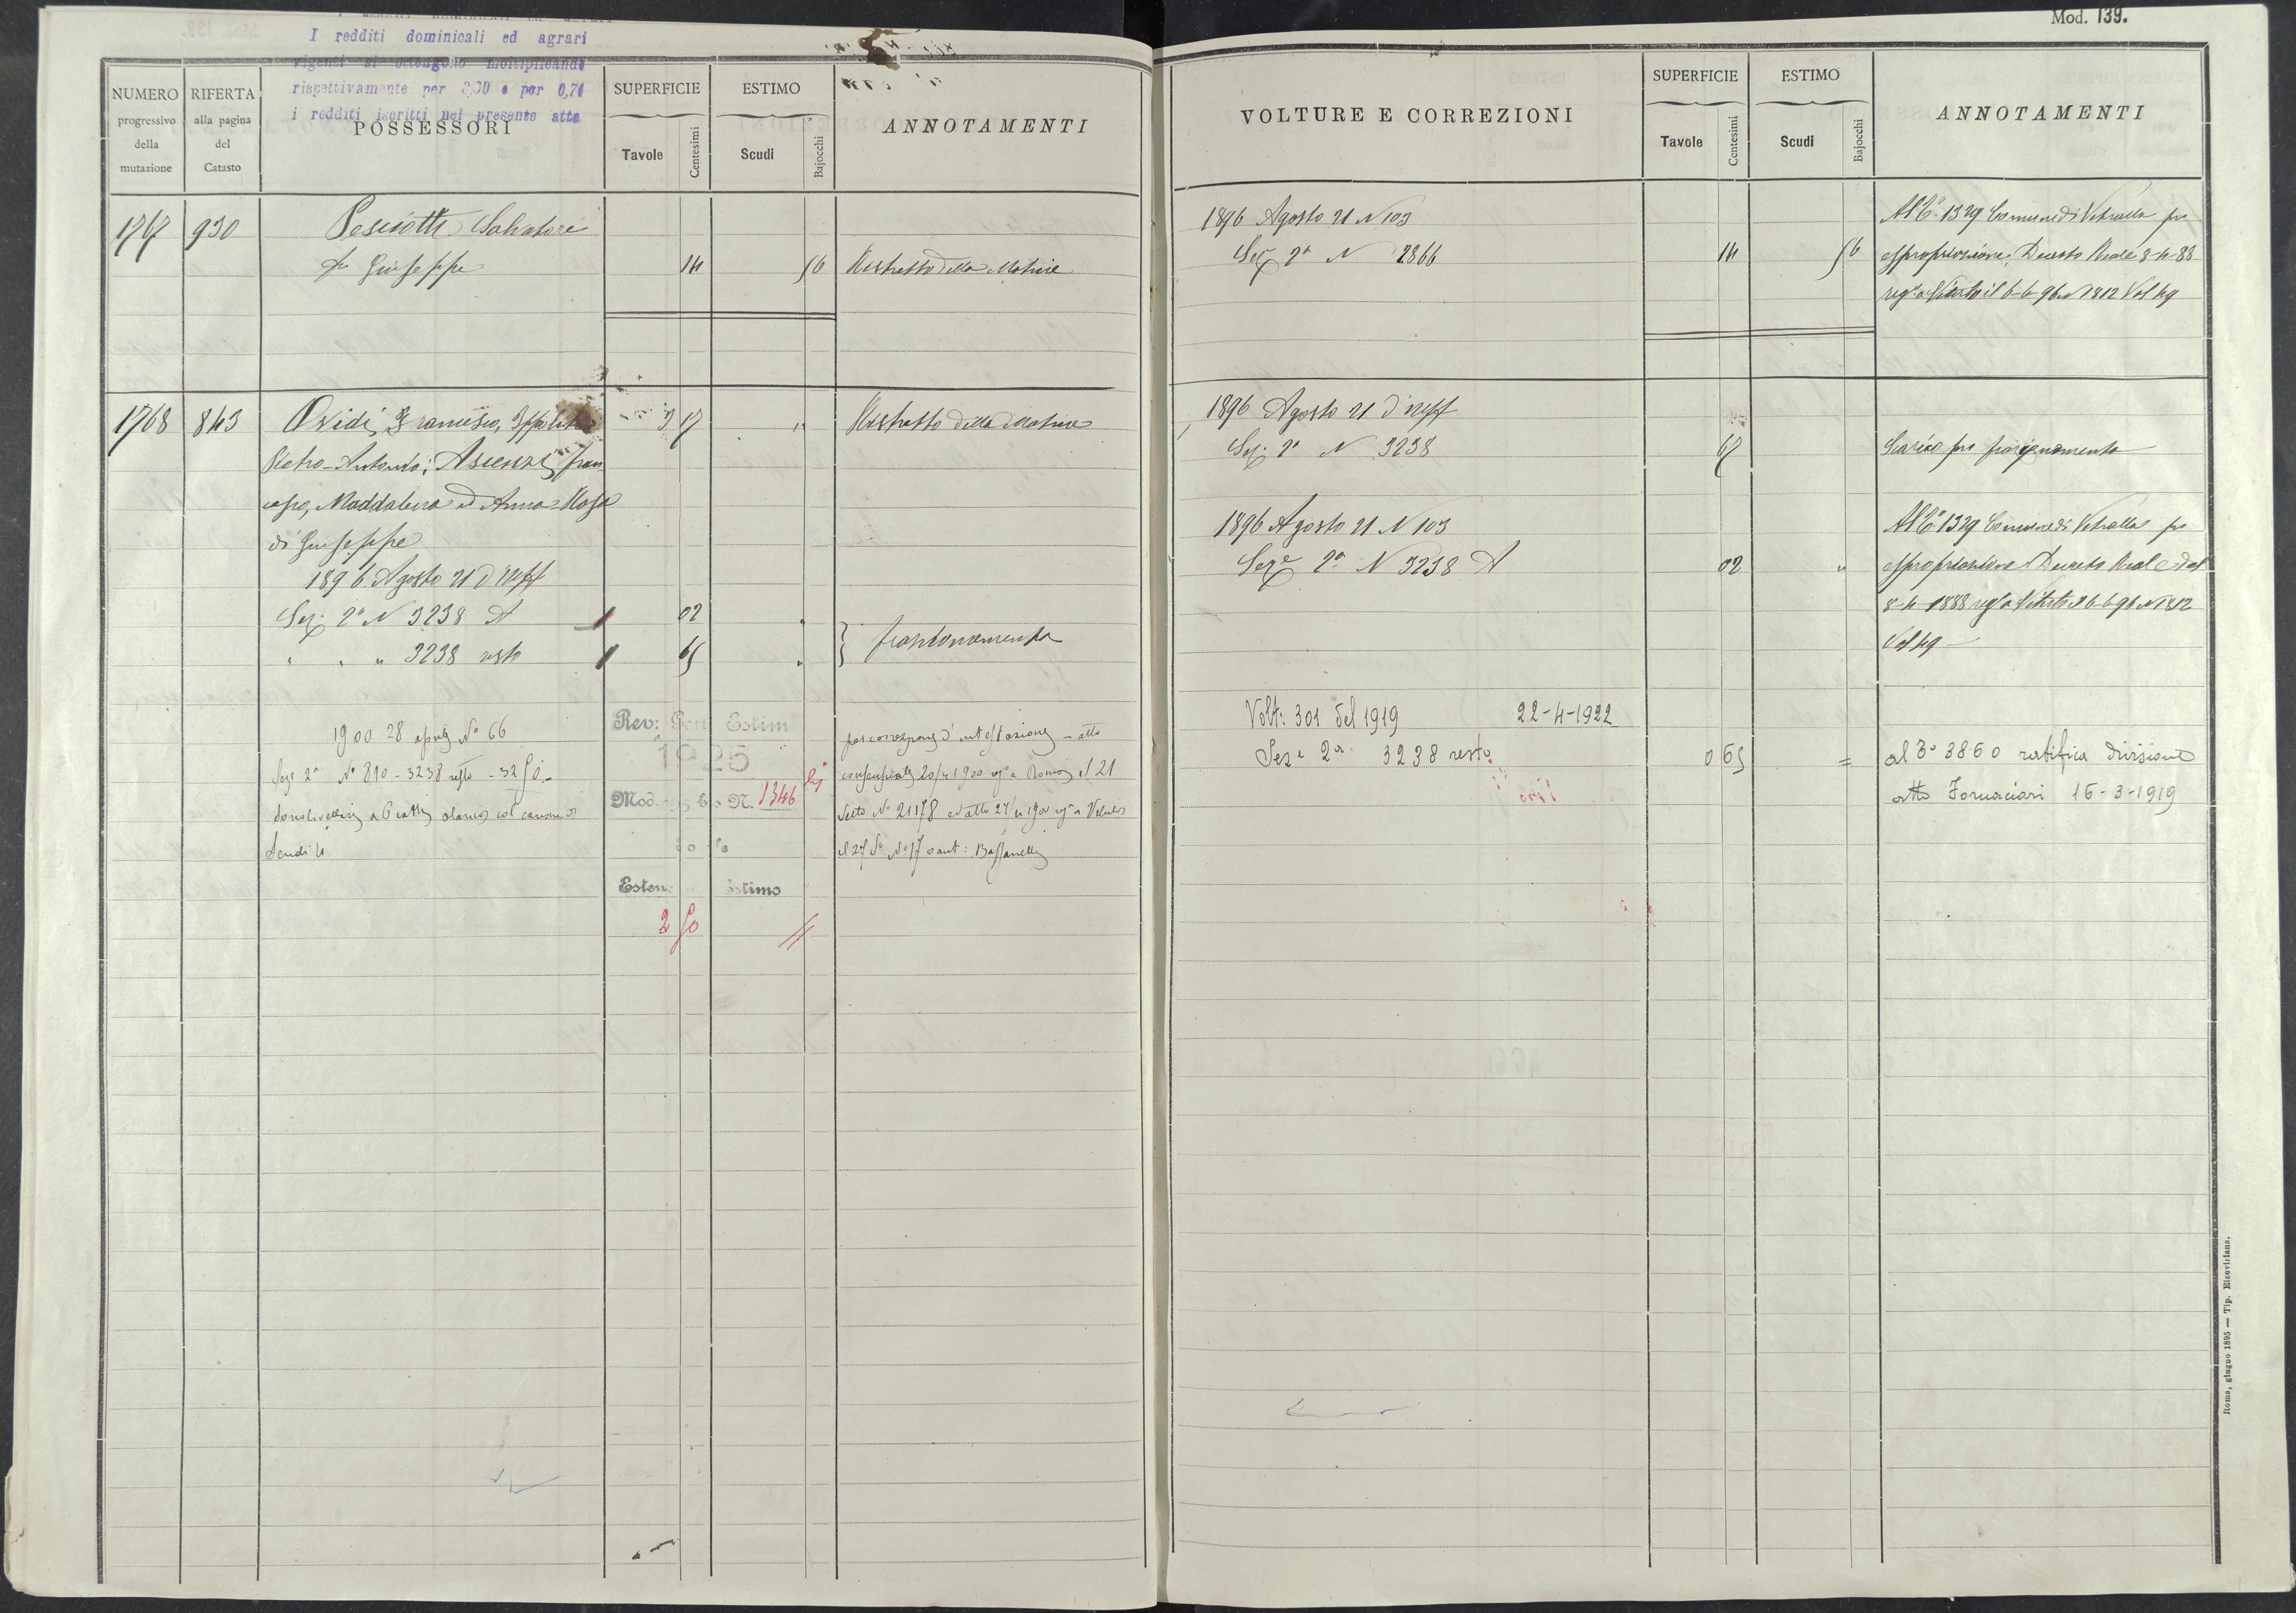 I redditi dominicali ed agrari
vigenti si ottengono moltiplicando
rispettivamente per e per 0,70
i redditi iscritti nel presente atto
NUMERO progressivo della mutazione
RIFERTA alla pagina del Catasto
POSSESSORI
SUPERFICIE
Tavole
Centesimi
ESTIMO
Scudi
Bajocchi
ANNOTAMENTI
1767 930 Pesciotti Salvatore
fu Giuseppe 14 56 Ristretto della Matrice
1768 843 Oxidi, Francesco, Ippolito 3 17 " Ristretto della Matrice
Pietro-Antonio; Ascenzi, Fran
cesco, Maddalena ed Anna-Rosa
di Giuseppe
1896 Agosto 21 d'uff
Sez. 2a N 3238 A 02 "
" " " 3238 resto 65 " } frazionamento
1900 28 aprile No 66
Seze 2a No 810 - 3238 resto - 3250 -
Scudi 4
Rev: Gen Estim
1925
Mod. N. 1346
Esten Estimo
2 50 //
per correzione d'intestazione - atto
consensuale 20/4 1900 rega Roma il 21
detto No 21178 ed atto 27/4 1900 rega Vetralla
Mod. 139.
VOLTURE E CORREZIONI
SUPERFICIE
Tavole
Centesimi
ESTIMO
Scudi
Bajocchi
ANNOTAMENTI
1896 Agosto 21 N 103 Al Co 1329 Comune di Vetralla per
Sez 2a N 2866 14 56 espropriazione, Decreto Reale 8-4-88
rego a Viterbo il 6-6-96 N 1812 Vol 49
1896 Agosto 21 d'uff
Sez. 2a N 3238 67 Scarico per frazionamento
1896 Agosto 21 N 103 Al Co 1329 Comune di Vetralla per
Seze 2a N 3238 A 02 " espropriazione Decreto Reale del
8-4-1888 rego a Viterbo il 6-6-96 N 1812
Vol 49 -
Volt: 301 del 1919 22-4-1922
Seze 2a 3238 resto 0 65 = al Co 3860 ratifica divisione
atto Fornaciari 16-3-1919
Roma, giugno 1895 — Tip. Elzeviriana.